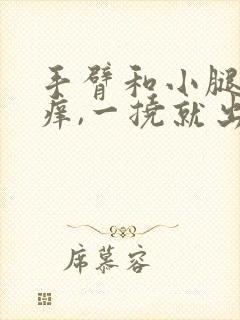 手臂和小腿
痒,一挠就出
席慕容